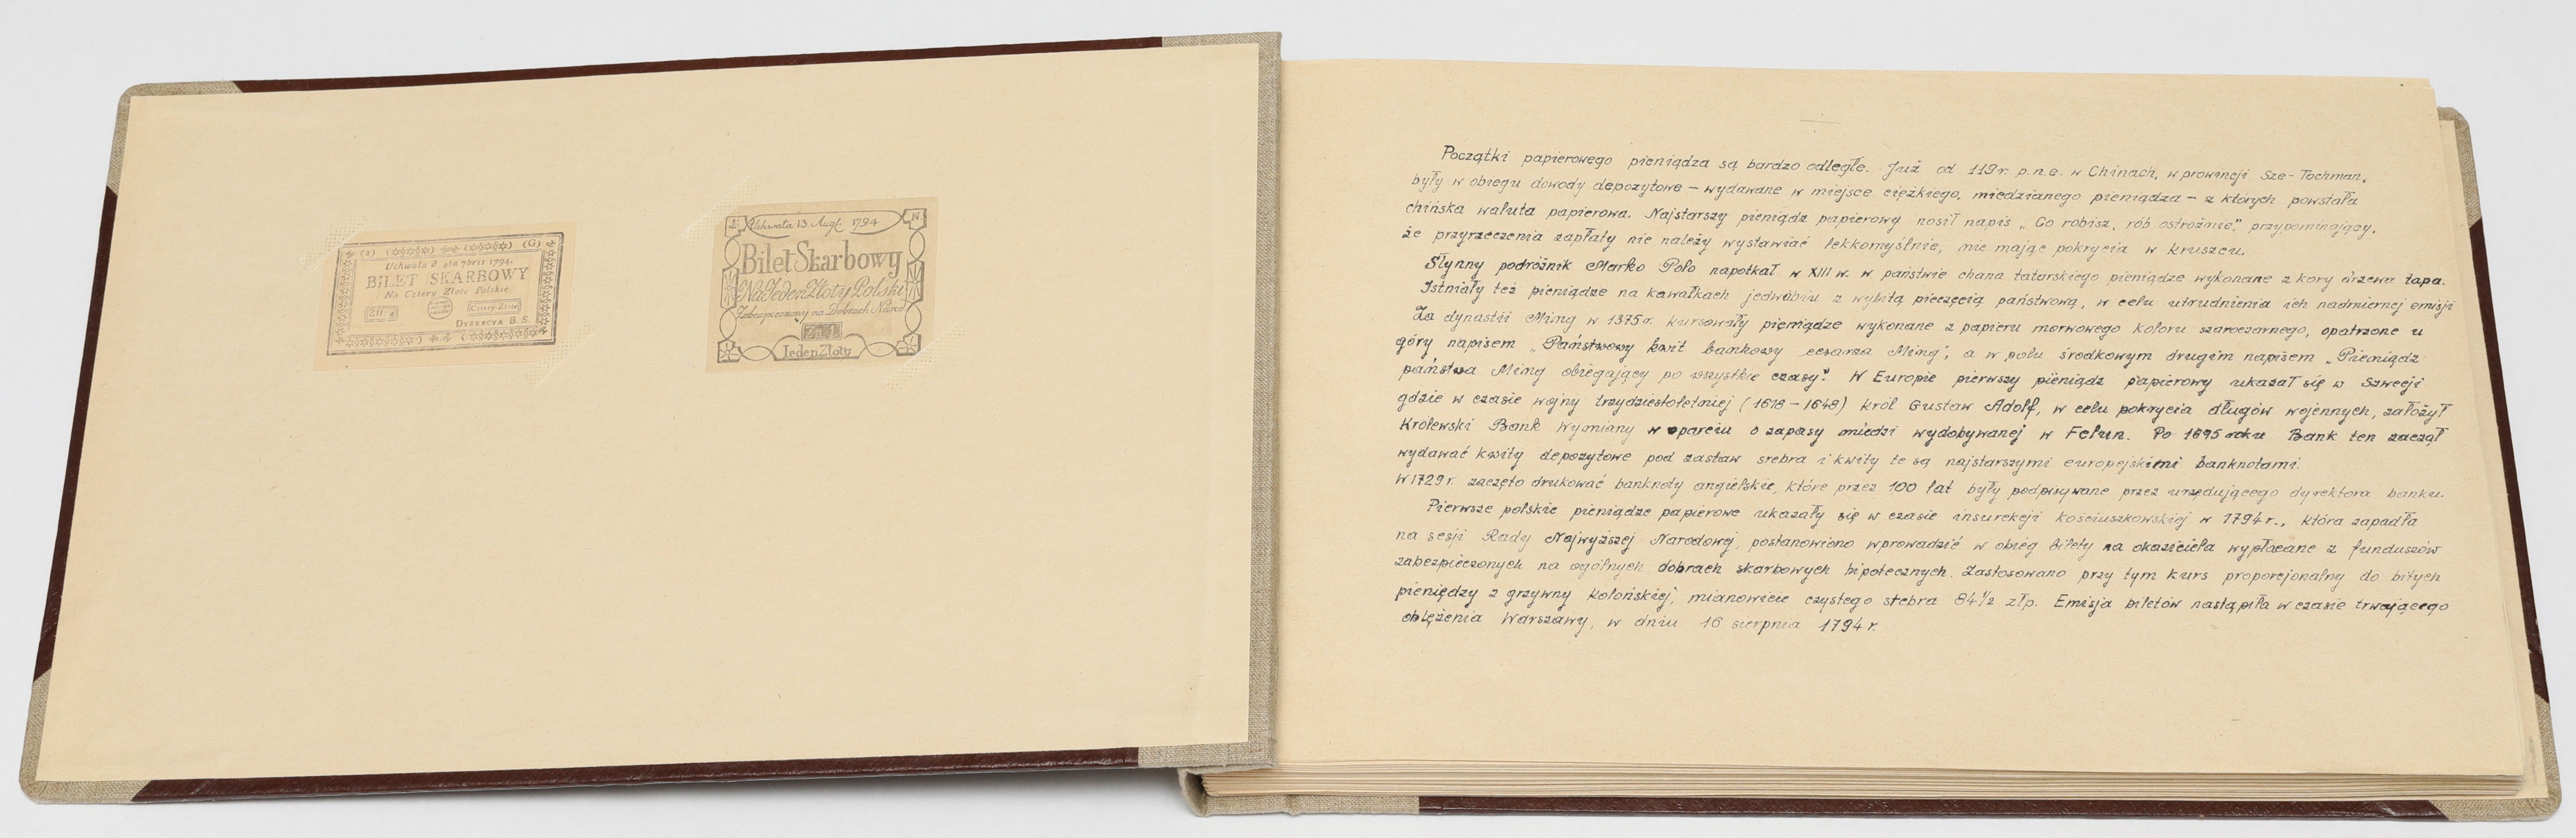 (2) (G)
Uchwała d. 4ta 7brii 1794.
BILET SKARBOWY
Na Cztery Złote Polskie
Zll: 4 Cztery Złote
DYREKCYA B. S.
Uchwała 13 Augt. 1794
Bilet Skarbowy
Na Jeden Złoty Polski
Zabezpieczony na Dobrach Narod
Zł: 1.
Jeden Złoty
Początki papierowego pieniądza są bardzo odległe. Już od 119 r. p.n.e. w Chinach, w prowincji Sze-Tochman,
były w obiegu dowody depozytowe – wydawane w miejsce ciężkiego, miedzianego pieniądza – z których powstała
chińska waluta papierowa. Najstarszy pieniądz papierowy nosił napis „Co robisz, rób ostrożnie”, przypominający,
że przyrzeczenia zapłaty nie należy wystawiać lekkomyślnie, nie mając pokrycia w kruszcu.
Słynny podróżnik Marko Polo napotkał w XIII w. w państwie chana tatarskiego pieniądze wykonane z kory drzewa tapa.
Istniały też pieniądze na kawałkach jedwabiu z wybitą pieczęcią państwową, w celu utrudnienia ich nadmiernej emisji
Za dynastii Ming w 1375 r. kursowały pieniądze wykonane z papieru morwowego koloru szaroczarnego, opatrzone u
góry napisem „Państwowy kwit bankowy cesarza Ming”, a w polu środkowym drugim napisem „Pieniądz
państwa Ming obiegający po wszystkie czasy”. W Europie pierwszy pieniądz papierowy ukazał się w Szwecji
gdzie w czasie wojny trzydziestoletniej (1618 – 1648) król Gustaw Adolf, w celu pokrycia długów wojennych, założył
Królewski Bank Wymiany w oparciu o zapasy miedzi wydobywanej w Felun. Po 1695 roku Bank ten zaczął
wydawać kwity depozytowe pod zastaw srebra i kwity te są najstarszymi europejskimi banknotami.
W 1729 r. zaczęto drukować banknoty angielskie, które przez 100 lat były podpisywane przez urzędującego dyrektora banku.
Pierwsze polskie pieniądze papierowe ukazały się w czasie insurekcji kościuszkowskiej w 1794 r., która zapadła
na sesji Rady Najwyższej Narodowej, postanowiono wprowadzić w obieg bilety na okaziciela wypłacane z funduszów
zabezpieczonych na ogólnych dobrach skarbowych hipotecznych. Zastosowano przy tym kurs proporcjonalny do bitych
pieniędzy z grzywny kolońskiej, mianowicie czystego srebra 84 1/2 złp. Emisja biletów nastąpiła w czasie trwającego
oblężenia Warszawy, w dniu 16 sierpnia 1794 r.